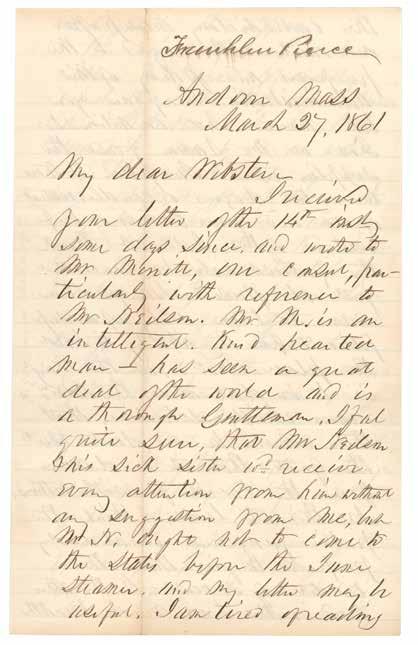 Franklin Pierce
Andover Mass
March 27, 1861
My dear Webster
I received
your letter of the 14th inst,
some days since. and wrote to
Mr Merritt, our Consul, par-
ticularly with reference to
Mr Neilson. Mr M. is an
intelligent. Kind hearted
man – has seen a great
deal of the world and is
a thorough Gentleman. I feel
quite sure, that Mr Neilson
& his sick sister wd receive
every attention from him without
any suggestion from me, but
Mr N. ought not to come to
the States before the June
steamer. and my letter may be
useful. I am tired of reading